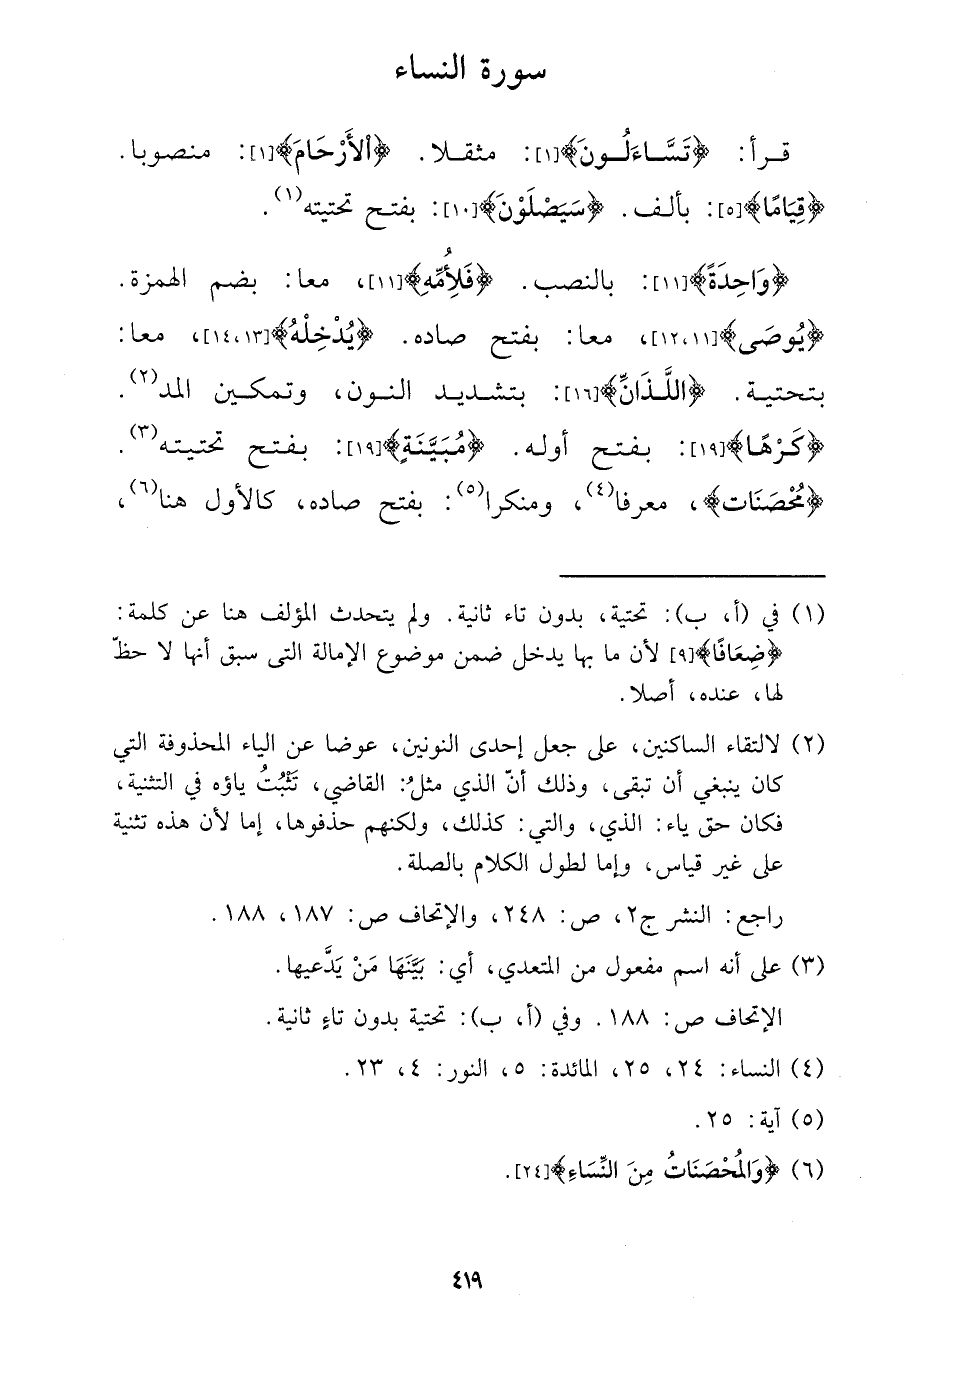 سورة النساء
قرأ: ﴿تَسَّاءَلُونَ﴾[١]: مثقلا. ﴿ٱلأَرْحَامَ﴾[١]: منصوبا.
﴿قِيَامًا﴾[٥]: بألف. ﴿سَيَصْلَوْنَ﴾[١٠]: بفتح تحتيته(١).
﴿وَاحِدَةً﴾[١١]: بالنصب. ﴿فَلِأُمِّهِ﴾[١١]، معا: بضم الهمزة.
﴿يُوصَى﴾[١١، ١٢]، معا: بفتح صاده. ﴿يُدْخِلْهُ﴾[١٣، ١٤]، معا:
بتحتية. ﴿اللَّذَانِّ﴾[١٦]: بتشديد النون، وتمكين المد(٢).
﴿كَرْهًا﴾[١٩]: بفتح أوله. ﴿مُبَيَّنَةٍ﴾[١٩]: بفتح تحتيته(٣).
﴿مُحْصَنَات﴾، معرفا(٤)، ومنكرا(٥): بفتح صاده، كالأول هنا(٦)،
(١) في (أ، ب): تحتية، بدون تاء ثانية. ولم يتحدث المؤلف هنا عن كلمة:
﴿ضِعَافًا﴾[٩] لأن ما بها يدخل ضمن موضوع الإمالة التى سبق أنها لا حظّ
لها، عنده، أصلا.
(٢) لالتقاء الساكنين، على جعل إحدى النونين، عوضا عن الياء المحذوفة التي
كان ينبغي أن تبقى، وذلك أنّ الذي مثلُ: القاضي، تَثْبُتُ ياؤه في التثنية،
فكان حق ياء: الذي، والتي: كذلك، ولكنهم حذفوها، إما لأن هذه تثنية
على غير قياس، وإما لطول الكلام بالصلة.
راجع: النشر ج٢، ص: ٢٤٨، والإتحاف ص: ١٨٧، ١٨٨.
(٣) على أنه اسم مفعول من المتعدي، أي: بَيَّنَهَا مَنْ يَدَّعيها.
الإتحاف ص: ١٨٨. وفي (أ، ب): تحتية بدون تاءٍ ثانية.
(٤) النساء: ٢٤، ٢٥، المائدة: ٥، النور: ٤، ٢٣.
(٥) آية: ٢٥.
(٦) ﴿وَالمُحْصَنَاتُ مِنَ النِّسَاءِ﴾[٢٤].
٤١٩